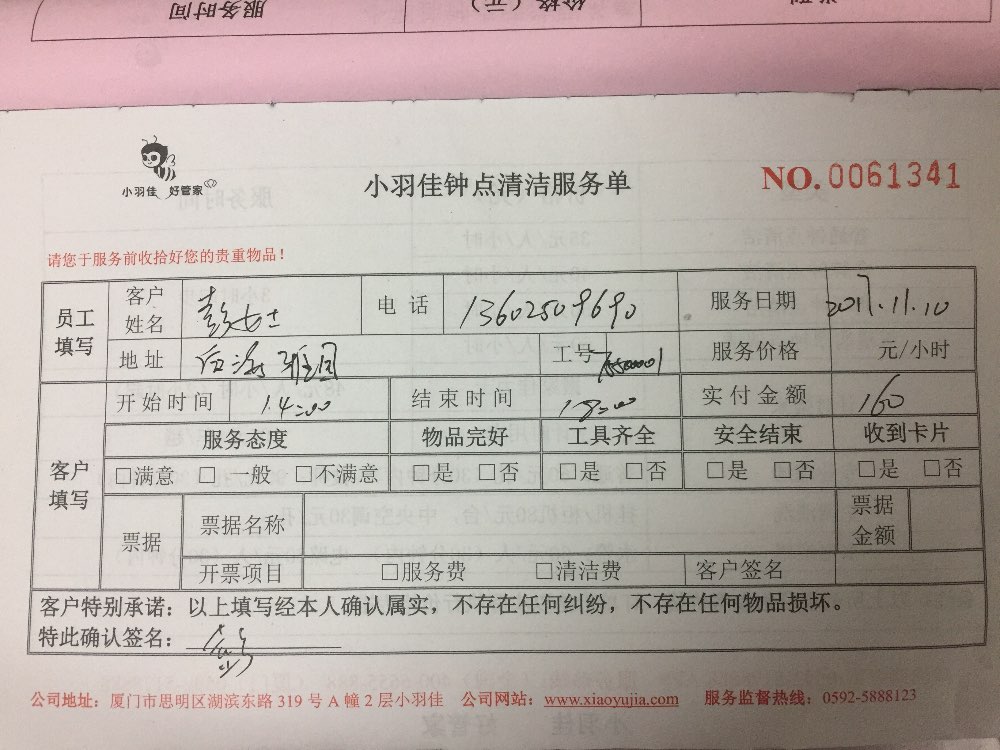 服务时间
价格（元）
类型
小羽佳 好管家
小羽佳钟点清洁服务单
NO. 0061341
请您于服务前收拾好您的贵重物品！
员工填写
客户姓名 彭女士 电话 13602509690 服务日期 2017.11.10
地址 后海雅园 工号 服务价格 元/小时
客户填写
开始时间 14:00 结束时间 18:00 实付金额 160
服务态度 物品完好 工具齐全 安全结束 收到卡片
□满意 □一般 □不满意 □是 □否 □是 □否 □是 □否 □是 □否
票据 票据名称 票据金额
开票项目 □服务费 □清洁费 客户签名
客户特别承诺：以上填写经本人确认属实，不存在任何纠纷，不存在任何物品损坏。
特此确认签名：彭
公司地址：厦门市思明区湖滨东路 319 号 A 幢 2 层小羽佳 公司网站：www.xiaoyujia.com 服务监督热线：0592-5888123